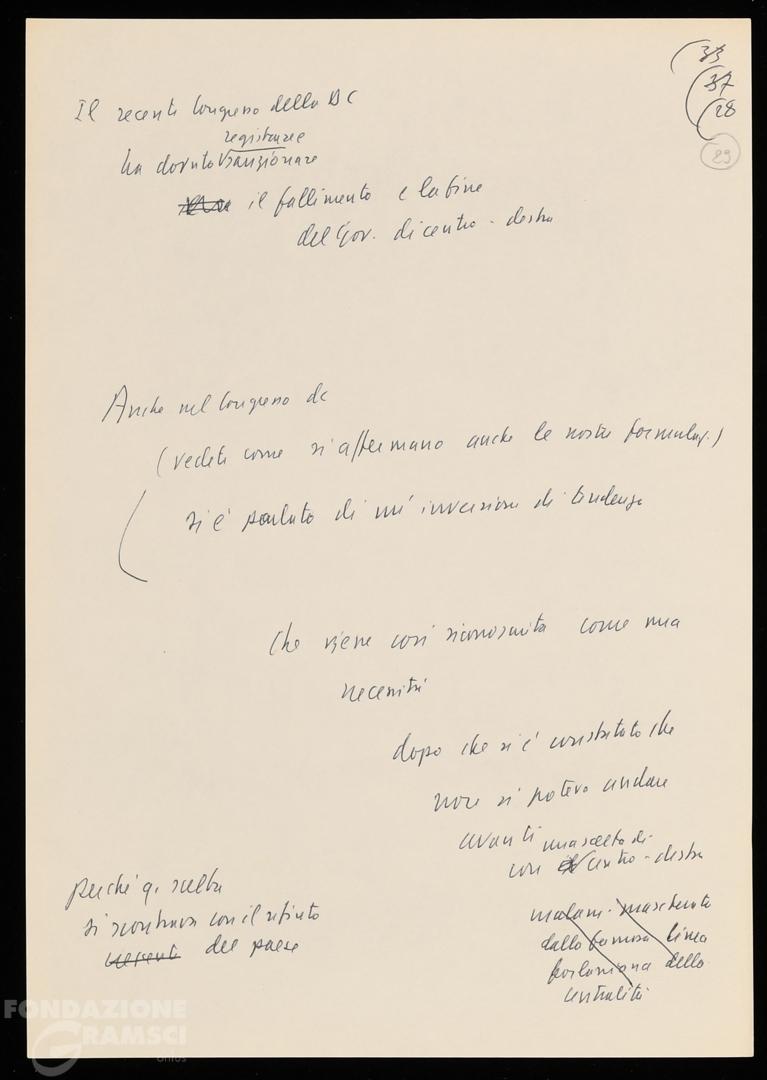 33
37
28
29
Il recente Congresso della DC
registrare
ha dovuto sanzionare
il fallimento e la fine
del Gov. di centro-destra
Anche nel Congresso dc
(vedete come si affermano anche le nostre formulaz.)
si è parlato di un'inversione di tendenza
che viene così riconosciuta come una
necessità
dopo che si è constatato che
non si poteva andare
avanti una scelta di
con centro-destra
perché q. scelta
si scontrava con il rifiuto
del paese
malam. mascherata
dalla famosa linea
forlaniana della
centralità
FONDAZIONE
GRAMSCI
onlus